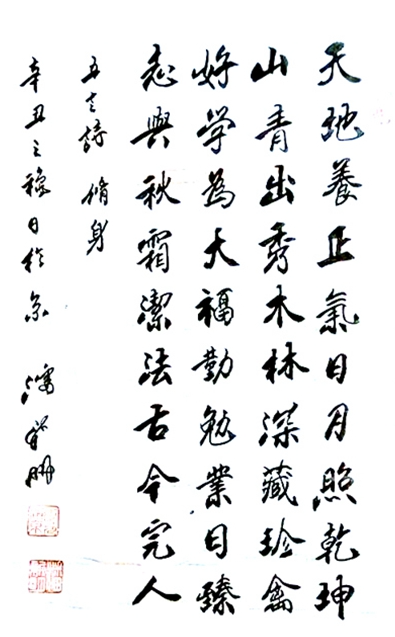 天地養正氣日月照乾坤
山青出秀木林深藏珍禽
好學為大福勤勉業日臻
志與秋霜潔法古今完人
五言詩 脩身
辛丑之穐日於京 潘